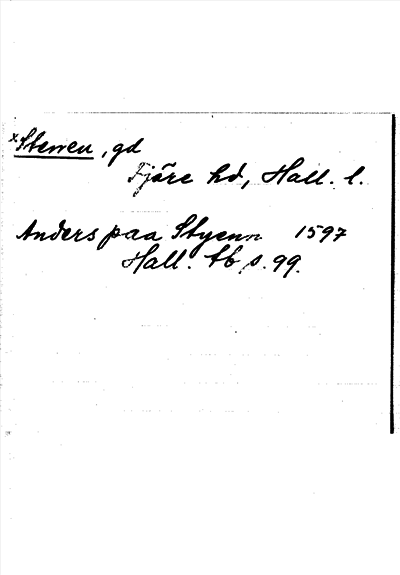 *Stenen, gd
Fjäre hd, Hall. l.
Anders paa Styenn 1597
Hall. tb s. 99.